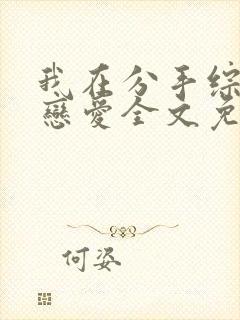 我在分手综
恋爱全文免
何姿